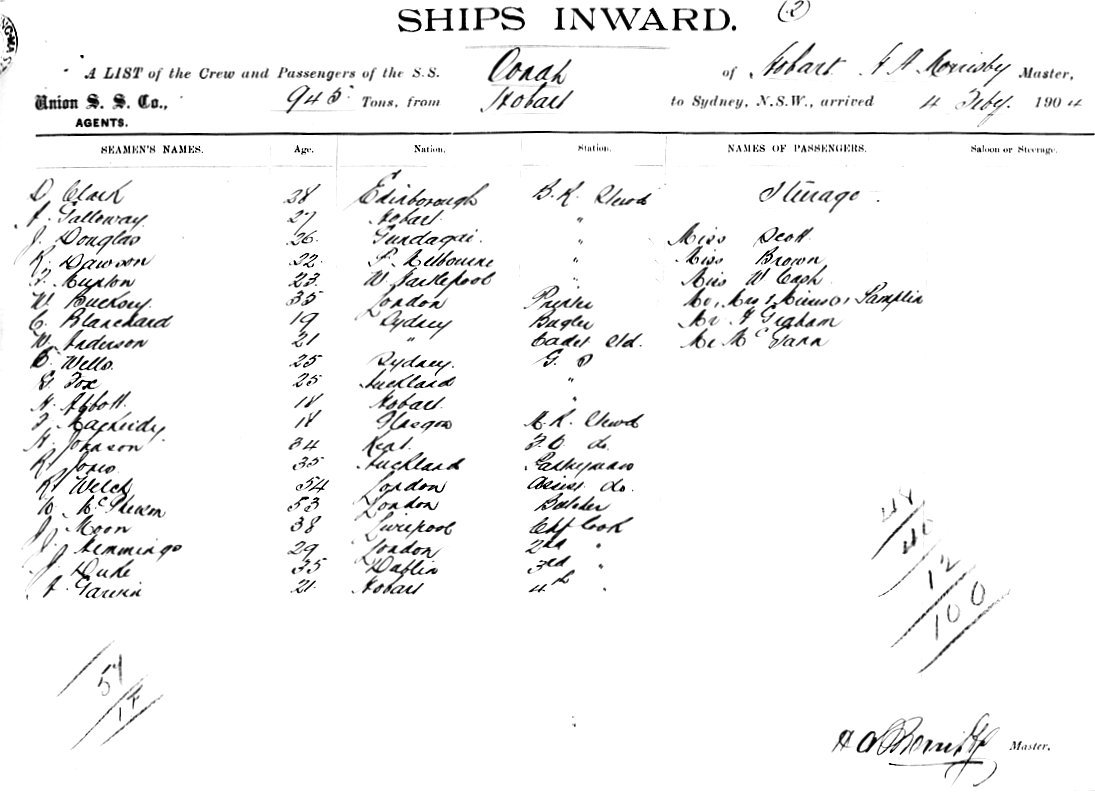 SHIPS INWARD. (2)
A LIST of the Crew and Passengers of the S.S. Oonah of Hobart H A Morrisby Master,
Union S. S. Co., AGENTS. 945 Tons, from Hobart to Sydney, N.S.W., arrived 4 Feby. 1904
SEAMEN'S NAMES. Age. Nation. Station. NAMES OF PASSENGERS. Saloon or Steerage.
D Clark 28 Edinborough B.R. Stewd Steerage
A. Galloway 27 Hobart "
J. Douglas 26 Gundagai. " Miss Scott
R. Dawson 22 P. Melbourne " Miss Brown
F. Munton 23 W Hartlepool " Miss W Cash
W. 35 London Printer Mr, Mrs & Misses Samplin
C. Blanchard 19 Sydney Bugler Mr Graham
W. Anderson 21 " Cadet Std. Mr McGann
Wells 25 Sydney. G. S
G. Fox 25 Auckland "
H. Abbott 18 Hobart "
F. 18 Glasgow M.R. Stewd
H. Johnson 34 Kent F.C do.
R. Jones 35 Auckland Pantryman
R. Welch 54 London Assist do.
McPherson 53 London Butcher
J. Moon 38 Liverpool Chf Cook
J. Hemmings 29 London 2nd "
J. Duke 35 Dublin 3rd "
A Garvin 21 Hobart 4th "
48
40
12
100
Master.